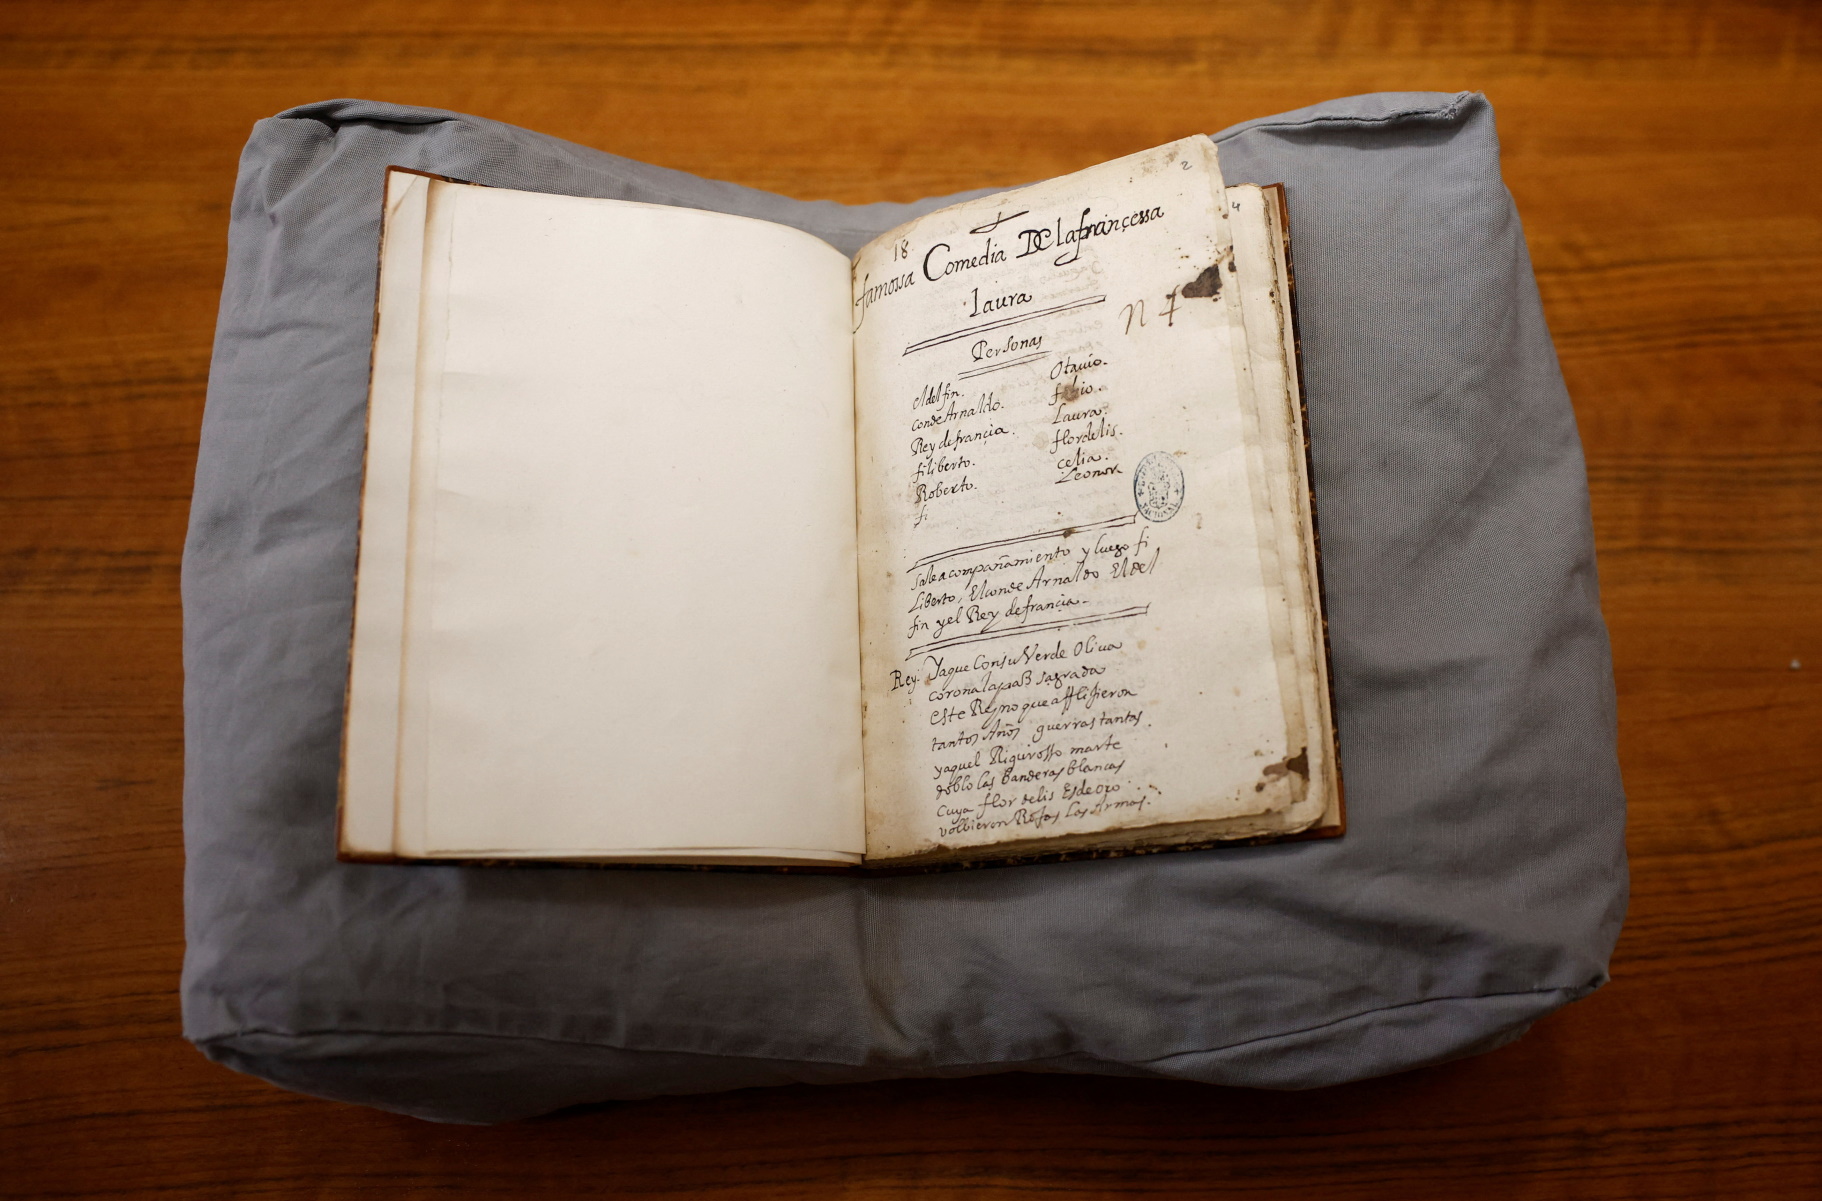 2
4
18
famossa Comedia De la françessa
laura
n 4
Personas
el delfin.
conde Arnaldo.
Rey de françia.
filiberto.
Roberto.
fi
Otauio.
fabio.
Laura.
flordelis.
celia.
Leonor
sale acompañamiento y luego fi
liberto, El conde Arnaldo El del
fin y el Rey de françia.
Rey. Ya que Con su Verde Oliua
corona la paz sagrada
este Reyno que afflijieron
tantos Años guerras tantas.
ya que el Rigurosso marte
doblo las Banderas blancas
Cuya flor de lis Es de oro
volbieron Rojas Las Armas.
NACIONAL